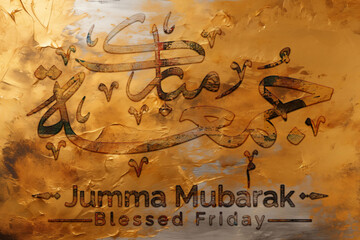 جمعة مباركة
Jumma Mubarak
Blessed Friday